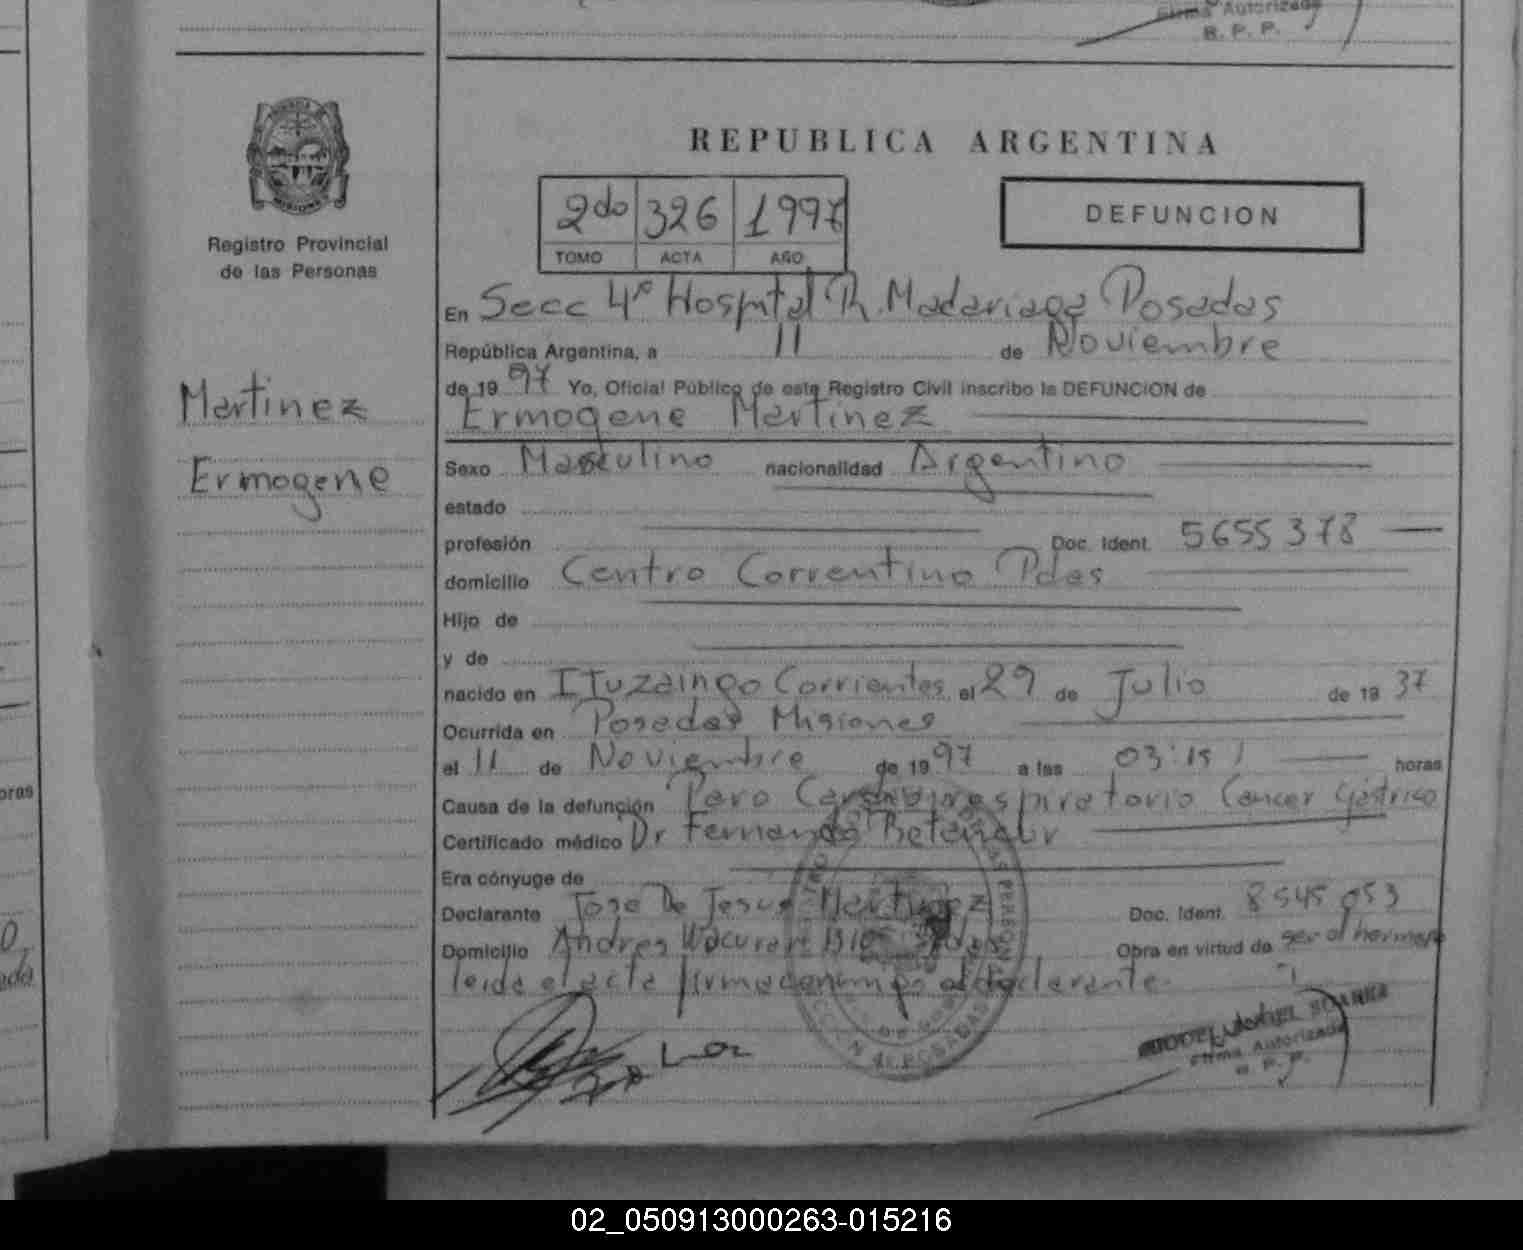 Firma Autorizada
R. P. P.
REPUBLICA ARGENTINA
2do 326 1997
TOMO ACTA AÑO
DEFUNCION
Registro Provincial
de las Personas
Martinez
Ermogene
En Secc 4º Hospital R. Madariaga Posadas
República Argentina, a 11 de Noviembre
de 19 97 Yo, Oficial Público de este Registro Civil inscribo la DEFUNCION de
Ermogene Martinez
Sexo Masculino nacionalidad Argentino
estado
profesión Doc. Ident. 5655378
domicilio Centro Correntino Pdas
Hijo de
y de
nacido en ITuzaingo Corrientes el 29 de Julio de 19 37
Ocurrida en Posadas Misiones
el 11 de Noviembre de 19 97 a las 03:15 horas
Causa de la defunción Paro Cardiorespiratorio Cancer Gástrico
Certificado médico Dr Fernando
Era cónyuge de
Declarante Jose De Jesus Martinez Doc. Ident. 8545053
Domicilio Andres Obra en virtud de ser el hermano
leida el acta firma conmigo el declarante
Firma Autorizada
R. P. P.
oras
02_050913000263-015216